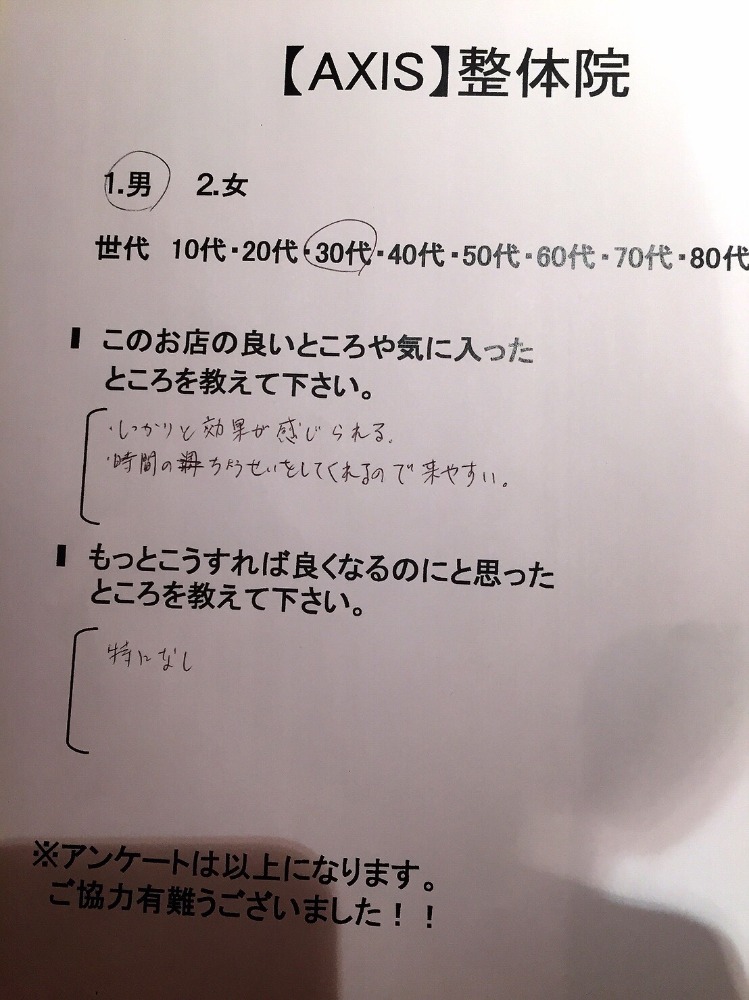 【AXIS】整体院
1.男 2.女
世代 10代・20代・30代・40代・50代・60代・70代・80代
このお店の良いところや気に入った
ところを教えて下さい。
・しっかりと効果が感じられる。
・時間のちょうせいをしてくれるので来やすい。
もっとこうすれば良くなるのにと思った
ところを教えて下さい。
特になし
※アンケートは以上になります。
ご協力有難うございました！！